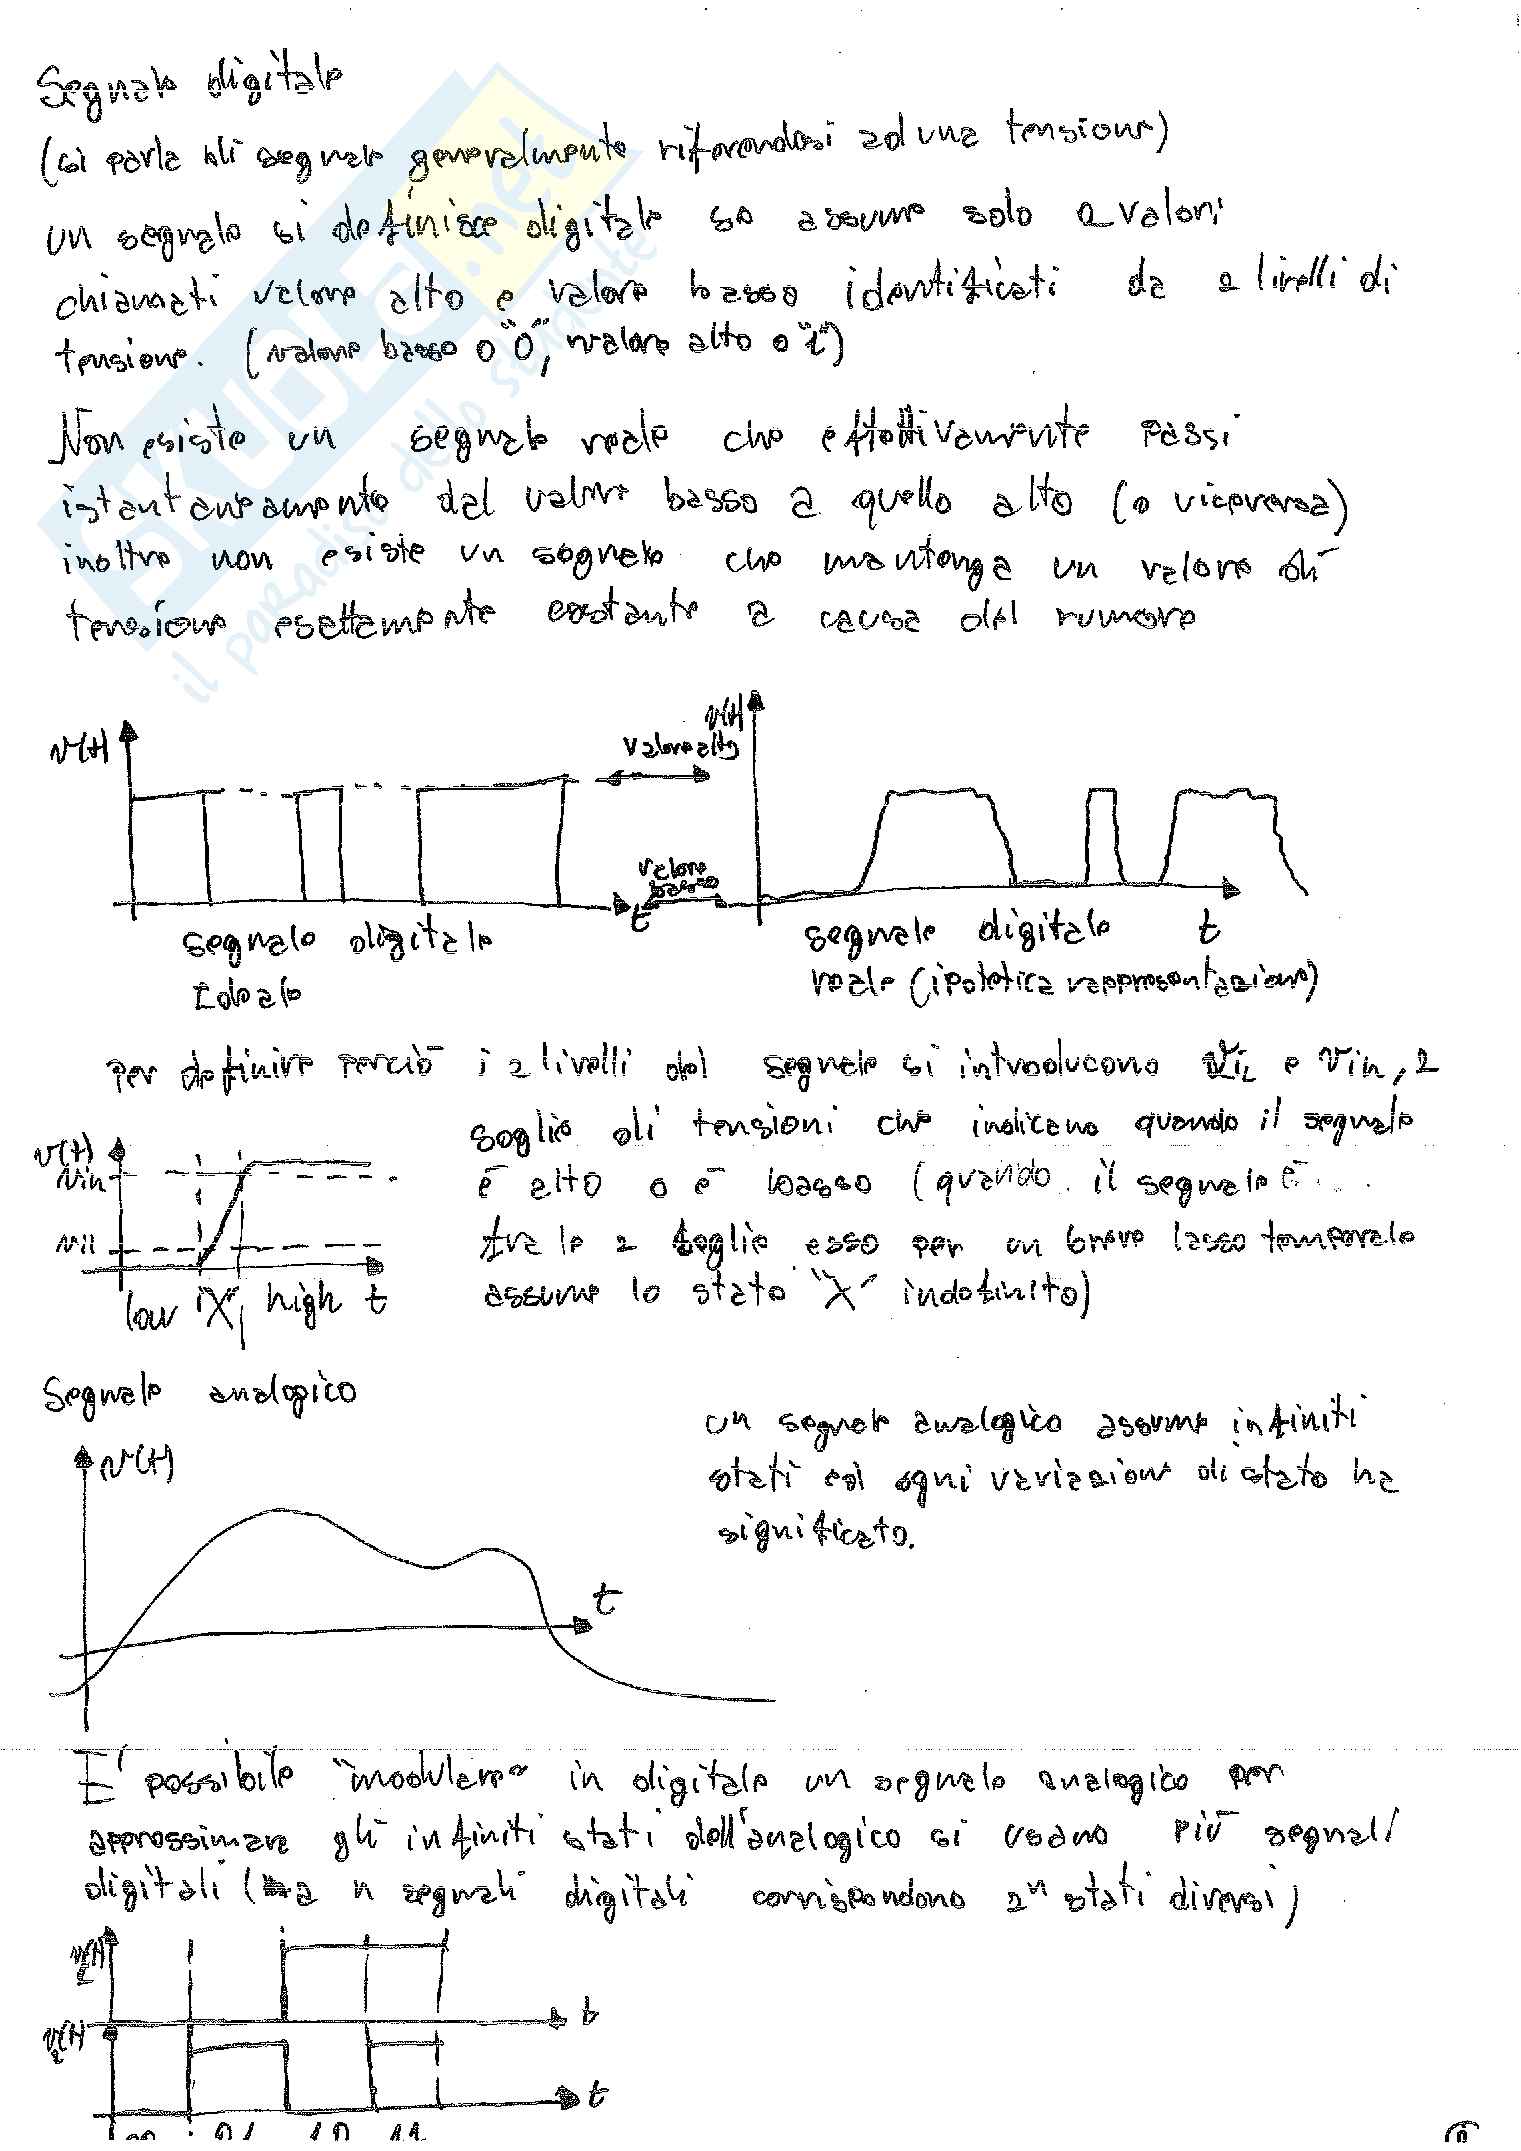 Segnale digitale
(si parla di segnale generalmente riferendosi ad una tensione)
un segnale si definisce digitale se assume solo 2 valori
chiamati valore alto e valore basso identificati da 2 livelli di
tensione. (valore basso o "0", valore alto o "1")
Non esiste un segnale reale che effettivamente passi
istantaneamente dal valore basso a quello alto (o viceversa)
inoltre non esiste un segnale che mantenga un valore di
tensione esattamente costante a causa del rumore
SKUOLA.net
il paradiso dello studente
v(t)
valore alto
v(t)
valore
basso
t
segnale digitale
Ideale
segnale digitale t
reale (ipotetica rappresentazione)
per definire perciò i 2 livelli del segnale si introducono ViL e Vin, 2
soglie di tensioni che indicano quando il segnale
è alto o è basso (quando il segnale è
fra le 2 soglie esso per un breve lasso temporale
assume lo stato "X" indefinito)
v(t)
Vin
Vil
low "X" high t
Segnale analogico
v(t)
un segnale analogico assume infiniti
stati ed ogni variazione di stato ha
significato.
t
E' possibile "modulare" in digitale un segnale analogico per
approssimare gli infiniti stati dell'analogico si usano più segnali
digitali (a n segnali digitali corrispondono 2ⁿ stati diversi)
t
v2(t)
t
00 01 10 11